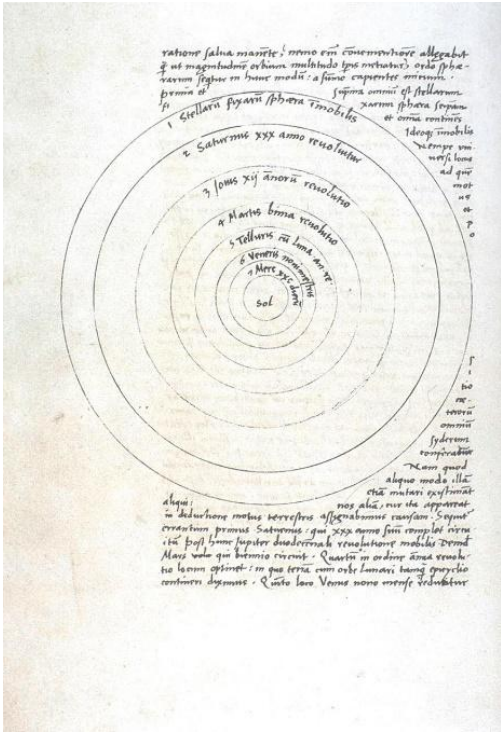 ratione salva manẽte, nemo em̃ cõvenientiorẽ allegabit
q̃ ut magnitudinẽ orbium multitudo tp̃is metiatur, ordo sphæ-
rarum seqtur in hunc modũ: a sũmo capientes initium.
prima et suprema omniũ est stellarum
fi xarum sphæra seipam
et omnia continẽs
Ideoqz ĩmobilis
nempe uni
uersi locus
ad quẽ
mot
us
et
p
o
1 Stellarũ fixarũ sphæra ĩmobilis
2 Saturnus xxx anno reuoluitur
3 Jouis xij anorũ reuolutio
4 Martis bima reuolutio
5 Telluris cũ luna an re
6 Veneris nonimestris
7 Merc xxc dierũ
Sol
s
i
tio
cæ-
terorũ
omniũ
syderum
conferatur
Nam quod
aliquo modo illã
etiã mutari existimãt
aliqui: nos aliã, cur ita appareat
in deductione motus terrestris assignabimus causam. Sequit
errantium primus Saturnus: qui xxx anno suũ complet circu
itũ post hunc Jupiter duodecennali reuolutione mobilis Demũ
Mars uolo qui biennio circuit. Quartũ in ordine ãnua reuolu
tio locum optinet: in quo terrã cum orbe lunari tanq̃ epicyclio
contineri diximus. Quinto loco Venus nono mense reducitur